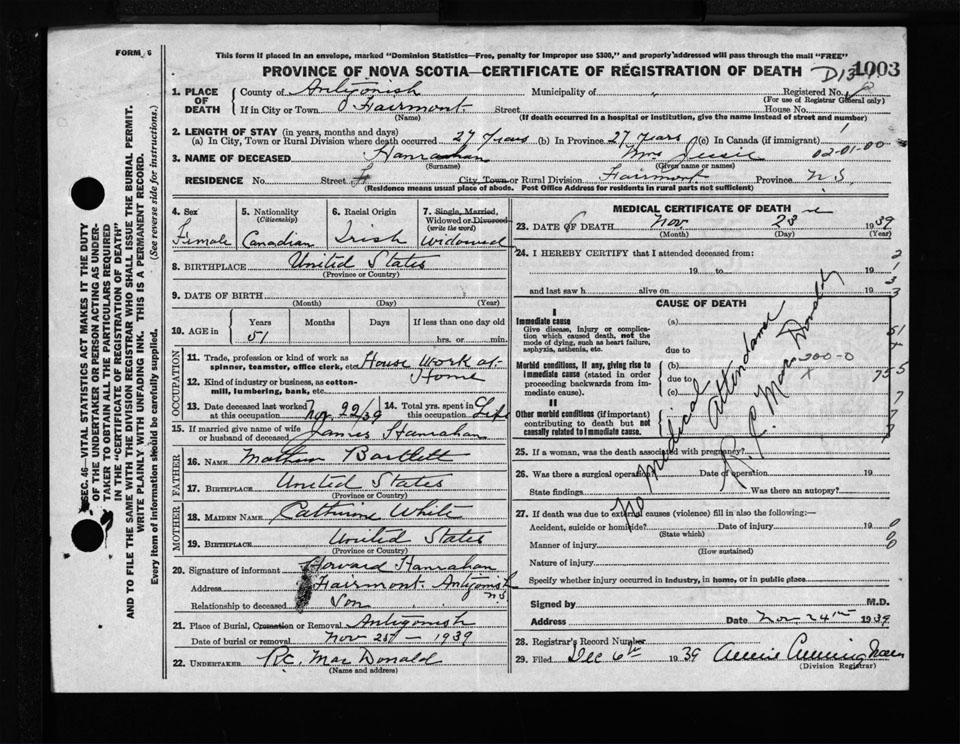 FORM 6
This form if placed in an envelope, marked "Dominion Statistics—Free, penalty for improper use $300," and properly addressed will pass through the mail "FREE"
PROVINCE OF NOVA SCOTIA—CERTIFICATE OF REGISTRATION OF DEATH
1003
1. PLACE OF DEATH
County of Antigonish Municipality of Registered No.
(For use of Registrar General only)
If in City or Town Fairmont Street House No.
(Name) (If death occurred in a hospital or institution, give the name instead of street and number)
2. LENGTH OF STAY (in years, months and days)
(a) In City, Town or Rural Division where death occurred 27 Years (b) In Province 27 Years (c) In Canada (if immigrant)
3. NAME OF DECEASED Hanrahan Mrs Jessie 02-01-00
(Surname) (Given name or names)
RESIDENCE No. Street City Town or Rural Division Fairmont Province N.S.
(Residence means usual place of abode. Post Office Address for residents in rural parts not sufficient)
4. Sex Female
5. Nationality (Citizenship) Canadian
6. Racial Origin Irish
7. Single, Married, Widowed or Divorced (write the word) Widowed
8. BIRTHPLACE United States
(Province or Country)
9. DATE OF BIRTH
(Month) (Day) (Year)
10. AGE in Years Months Days If less than one day old
51 hrs. or min.
OCCUPATION
11. Trade, profession or kind of work as spinner, teamster, office clerk, etc. House Work at Home
12. Kind of industry or business, as cotton-mill, lumbering, bank, etc.
13. Date deceased last worked at this occupation Nov 22/39
14. Total yrs. spent in this occupation Life
15. If married give name of wife or husband of deceased James Hanrahan
FATHER
16. NAME Bartlett
17. BIRTHPLACE United States
(Province or Country)
MOTHER
18. MAIDEN NAME Catherine White
19. BIRTHPLACE United States
(Province or Country)
20. Signature of informant Howard Hanrahan
Address Fairmont Antigonish N.S.
Relationship to deceased Son
21. Place of Burial, Cremation or Removal Antigonish
Date of burial or removal Nov 25th — 1939
22. UNDERTAKER R.C. MacDonald
(Name and address)
MEDICAL CERTIFICATE OF DEATH
23. DATE OF DEATH Nov. 23 1939
(Month) (Day) (Year)
24. I HEREBY CERTIFY that I attended deceased from:
19 to 19
and last saw h alive on 19
CAUSE OF DEATH
I
Immediate cause (a)
Give disease, injury or complication which caused death, not the mode of dying, such as heart failure, asphyxia, asthenia, etc.
due to
Morbid conditions, if any, giving rise to immediate cause (stated in order proceeding backwards from immediate cause).
(b)
due to
(c)
II
Other morbid conditions (if important) contributing to death but not causally related to immediate cause.
No medical attendance
R.C. MacDonald
200-0
25. If a woman, was the death associated with pregnancy?
26. Was there a surgical operation? Date of operation 19
State findings Was there an autopsy?
27. If death was due to external causes (violence) fill in also the following:—
Accident, suicide or homicide? Date of injury 19
(State which)
Manner of injury
(How sustained)
Nature of injury
Specify whether injury occurred in industry, in home, or in public place
Signed by M.D.
Address Date Nov 24th 1939
28. Registrar's Record Number
29. Filed Dec 6th 1939 Annie Cunningham
(Division Registrar)
SEC. 46—VITAL STATISTICS ACT MAKES IT THE DUTY
OF THE UNDERTAKER OR PERSON ACTING AS UNDERTAKER TO OBTAIN ALL THE PARTICULARS REQUIRED
IN THE "CERTIFICATE OF REGISTRATION OF DEATH"
AND TO FILE THE SAME WITH THE DIVISION REGISTRAR WHO SHALL ISSUE THE BURIAL PERMIT.
WRITE PLAINLY WITH UNFADING INK. THIS IS A PERMANENT RECORD.
Every item of information should be carefully supplied. (See reverse side for instructions.)